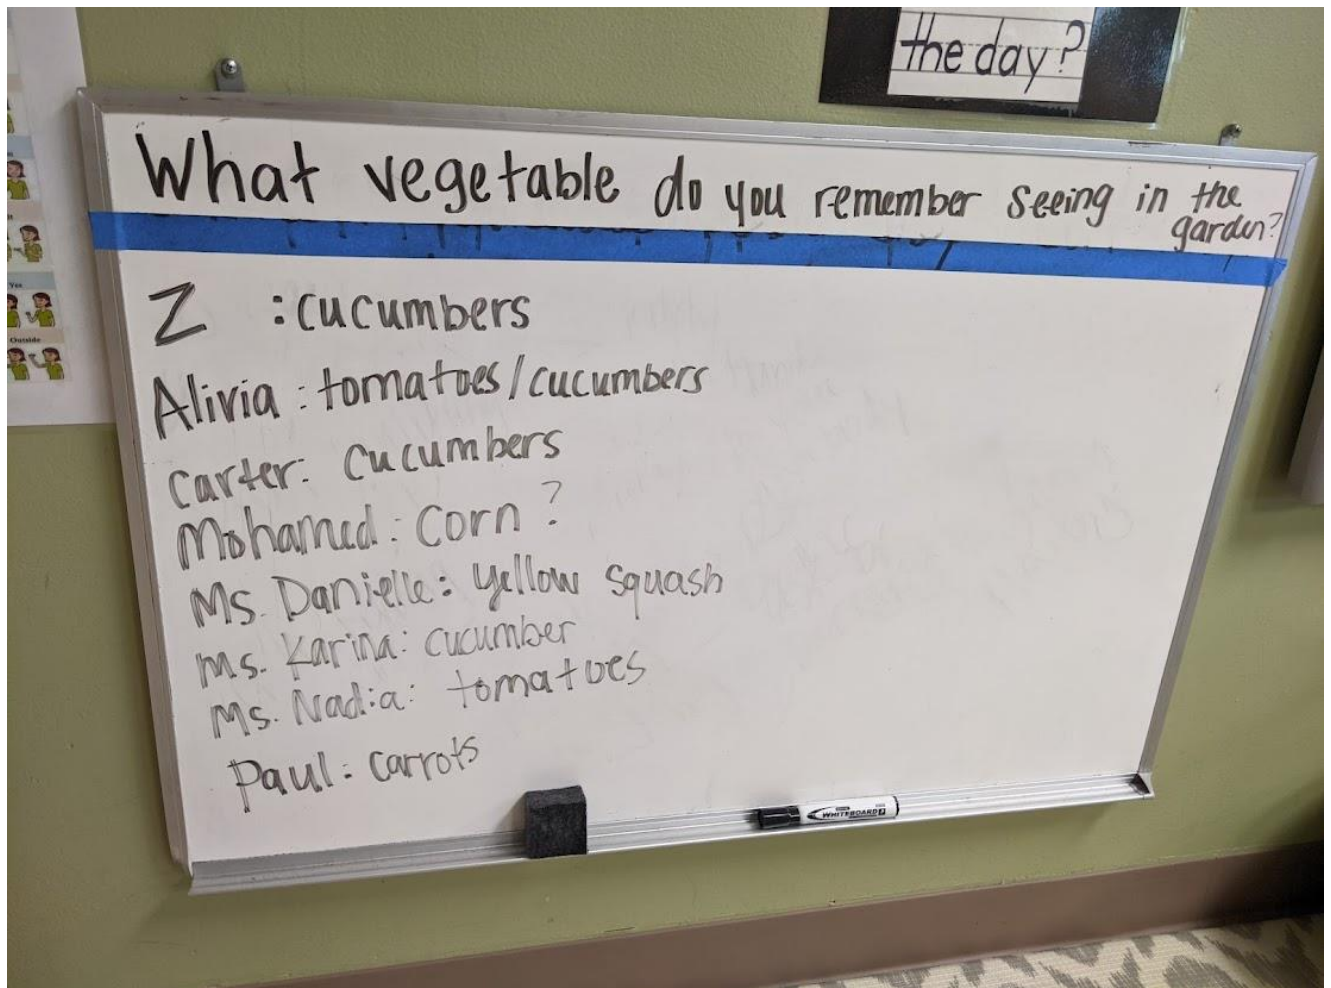 the day?
What vegetable do you remember seeing in the
garden?
Z : cucumbers
Alivia : tomatoes/cucumbers
Carter: cucumbers
Mohamed : Corn ?
Ms. Danielle : yellow squash
Ms. Karina : cucumber
Ms. Nadia : tomatoes
Paul : carrots
Yes
Outside
WHITEBOARD